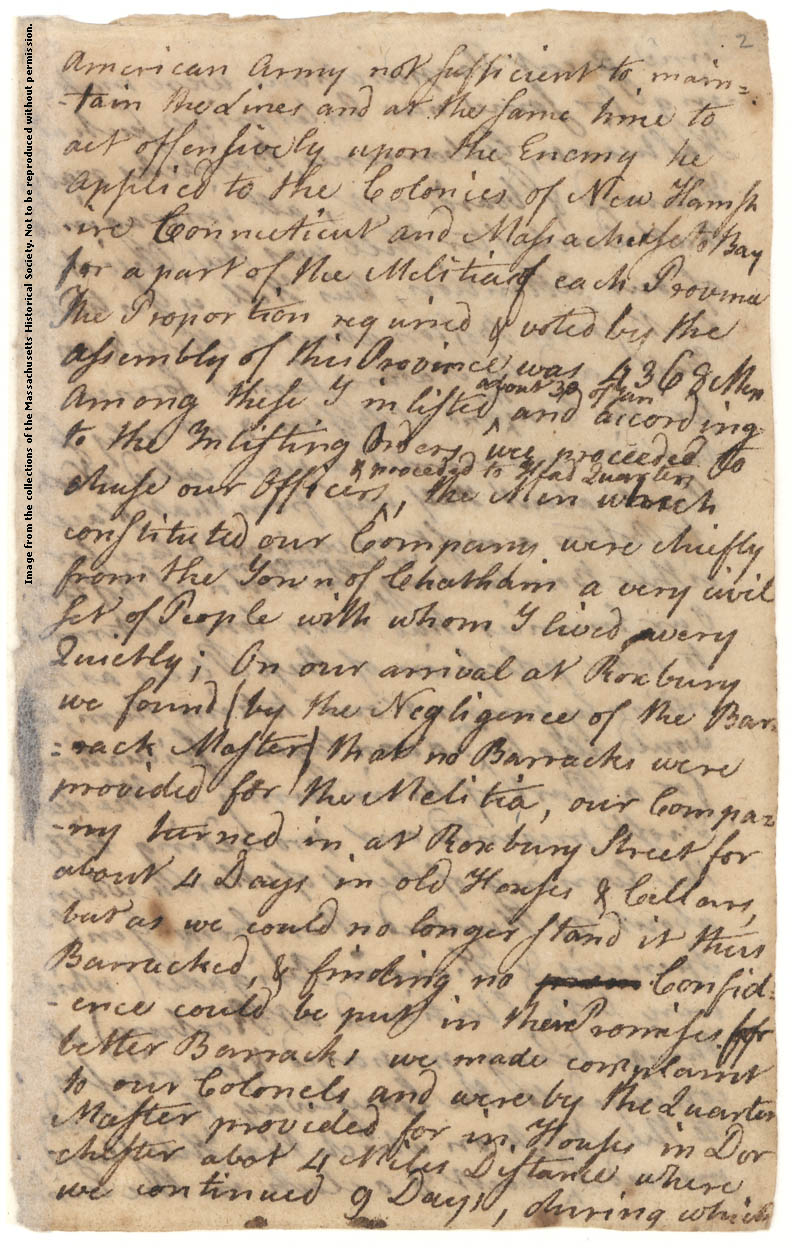 2
American Army not sufficient to main=
-tain the Lines and at the same time to
act offensively upon the Enemy he
applied to the Colonies of New Hamsh
-ire Connecticut and Massachusetts Bay
for a part of the Melitia of each Province
The Proportion required & voted by the
assembly of this Province was 4368 Men
about 30 of an
Among these I inlisted and according
to the Inlisting Orders we proceeded to
& proceeded to Head Quarters
chuse our Officers, the Men which
constituted our Company were chiefly
from the Town of Chatham a very civil
set of People with whom I lived very
Quietly; On our arrival at Roxbury
we found (by the Negligence of the Bar=
=rack Master) that no Barracks were
provided for the Melitia, our Compa=
-ny turned in at Roxbury Street for
about 4 Days in old Houses & Cellars,
but as we could no longer stand it thus
Barracked, & finding no Confid=
-ence could be put in their Promises for
better Barracks we made complaint
to our Colonels and were by the Quarter
Master provided for in Houses in Dor
-chester abot 4 Miles Distance where
we continued 9 Days, during which
Image from the collections of the Massachusetts Historical Society. Not to be reproduced without permission.